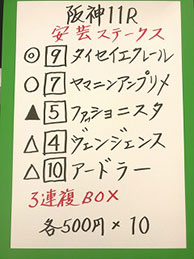 阪神11R
安芸ステークス
◎ 9 タイセイエクレール
○ 7 ヤマニンアンプリメ
▲ 5 ファッショニスタ
△ 4 ヴェンジェンス
△ 10 アードラー
3連複BOX
各500円×10